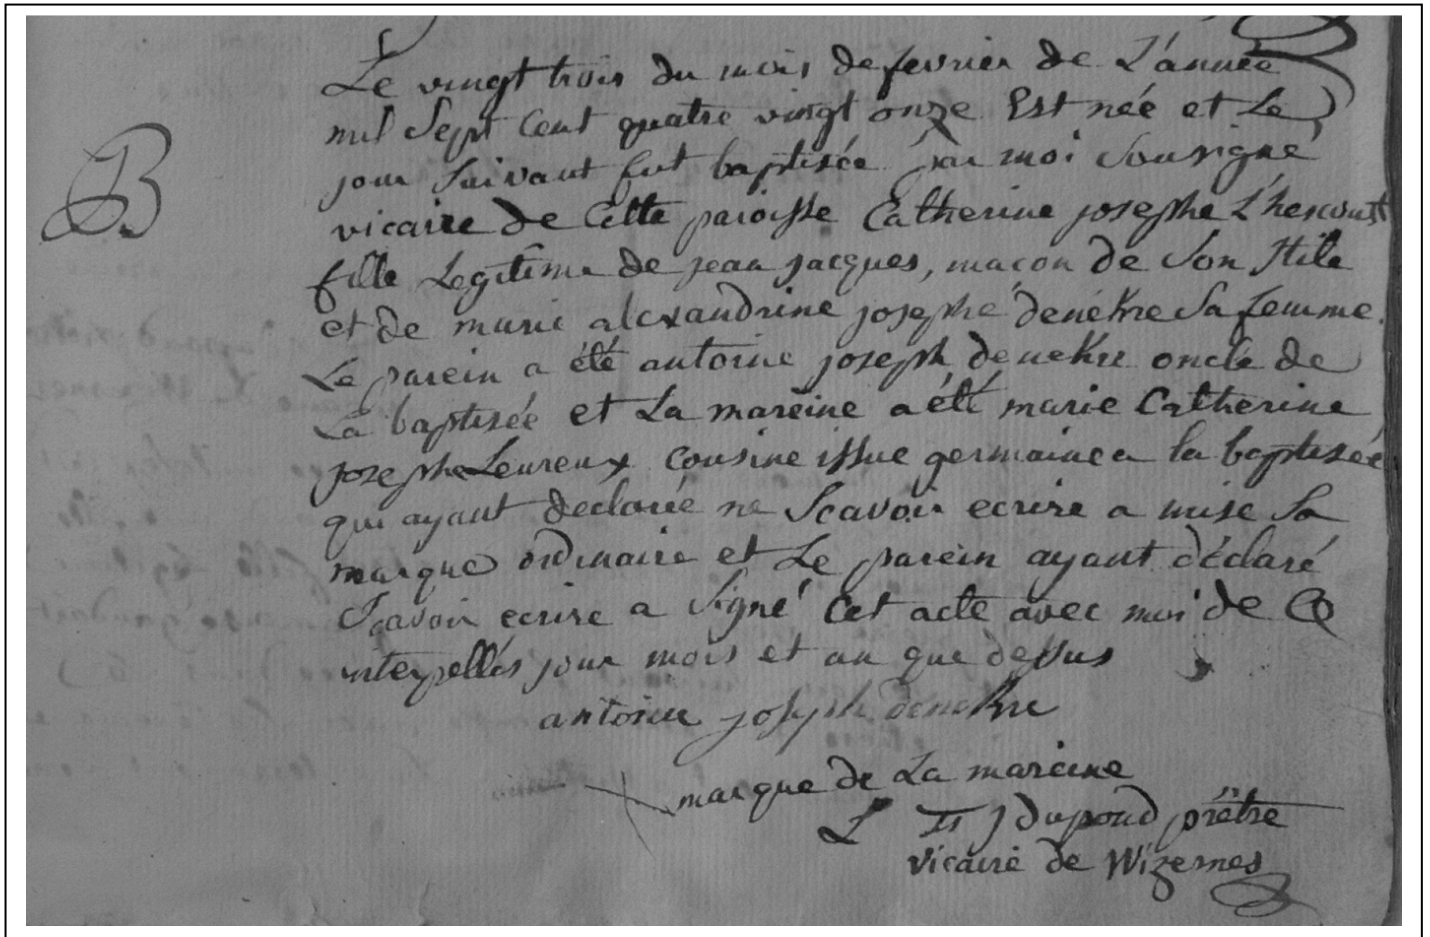 B
Le vingt trois du mois de fevrier de L'année
mil Sept Cent quatre vingt onze Est née et Le
jour Suivant fut baptisée par moi Sousigné
vicaire de Cette paroisse Catherine josephe
fille Legitime de jean jacques, macon de Son Stile
et de marie alexandrine josephe denekre Sa femme.
Le parein a été antoine joseph denekre oncle de
La baptisée et La mareine a été marie Catherine
josephe Leureux cousine issue germaine a la baptisée
qui ayant declarée ne Scavoir ecrire a mise Sa
marque ordinaire et Le parein ayant déclaré
Scavoir ecrire a Signé Cet acte avec moi de Ce
interpellés jour mois et an que dessus
antoine joseph denekre
marque de La mareine
L J dupond prêtre
vicaire de Wizernes